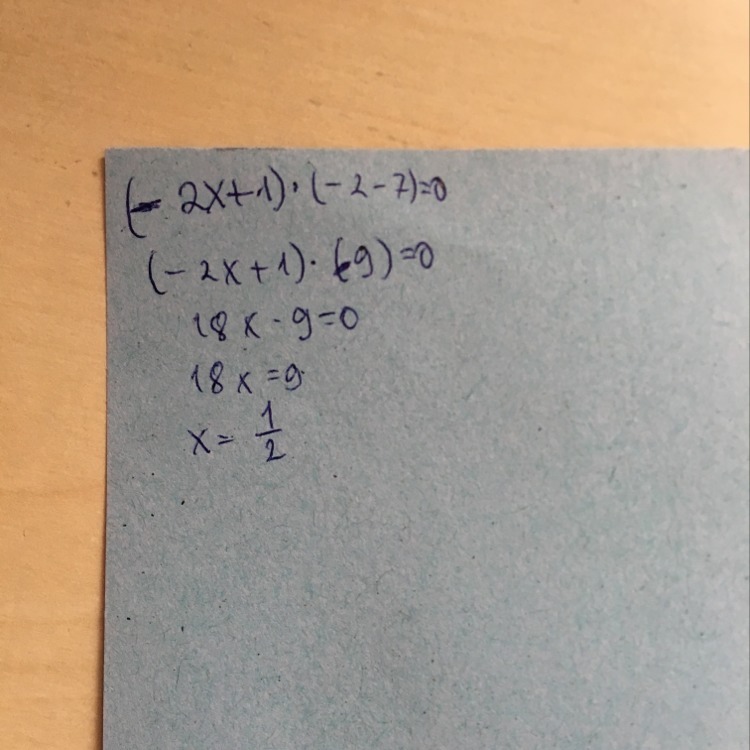 (- 2x+1)·(-2-7)=0
(-2x+1)·(-9)=0
18x-9=0
18x=9
x= 1/2